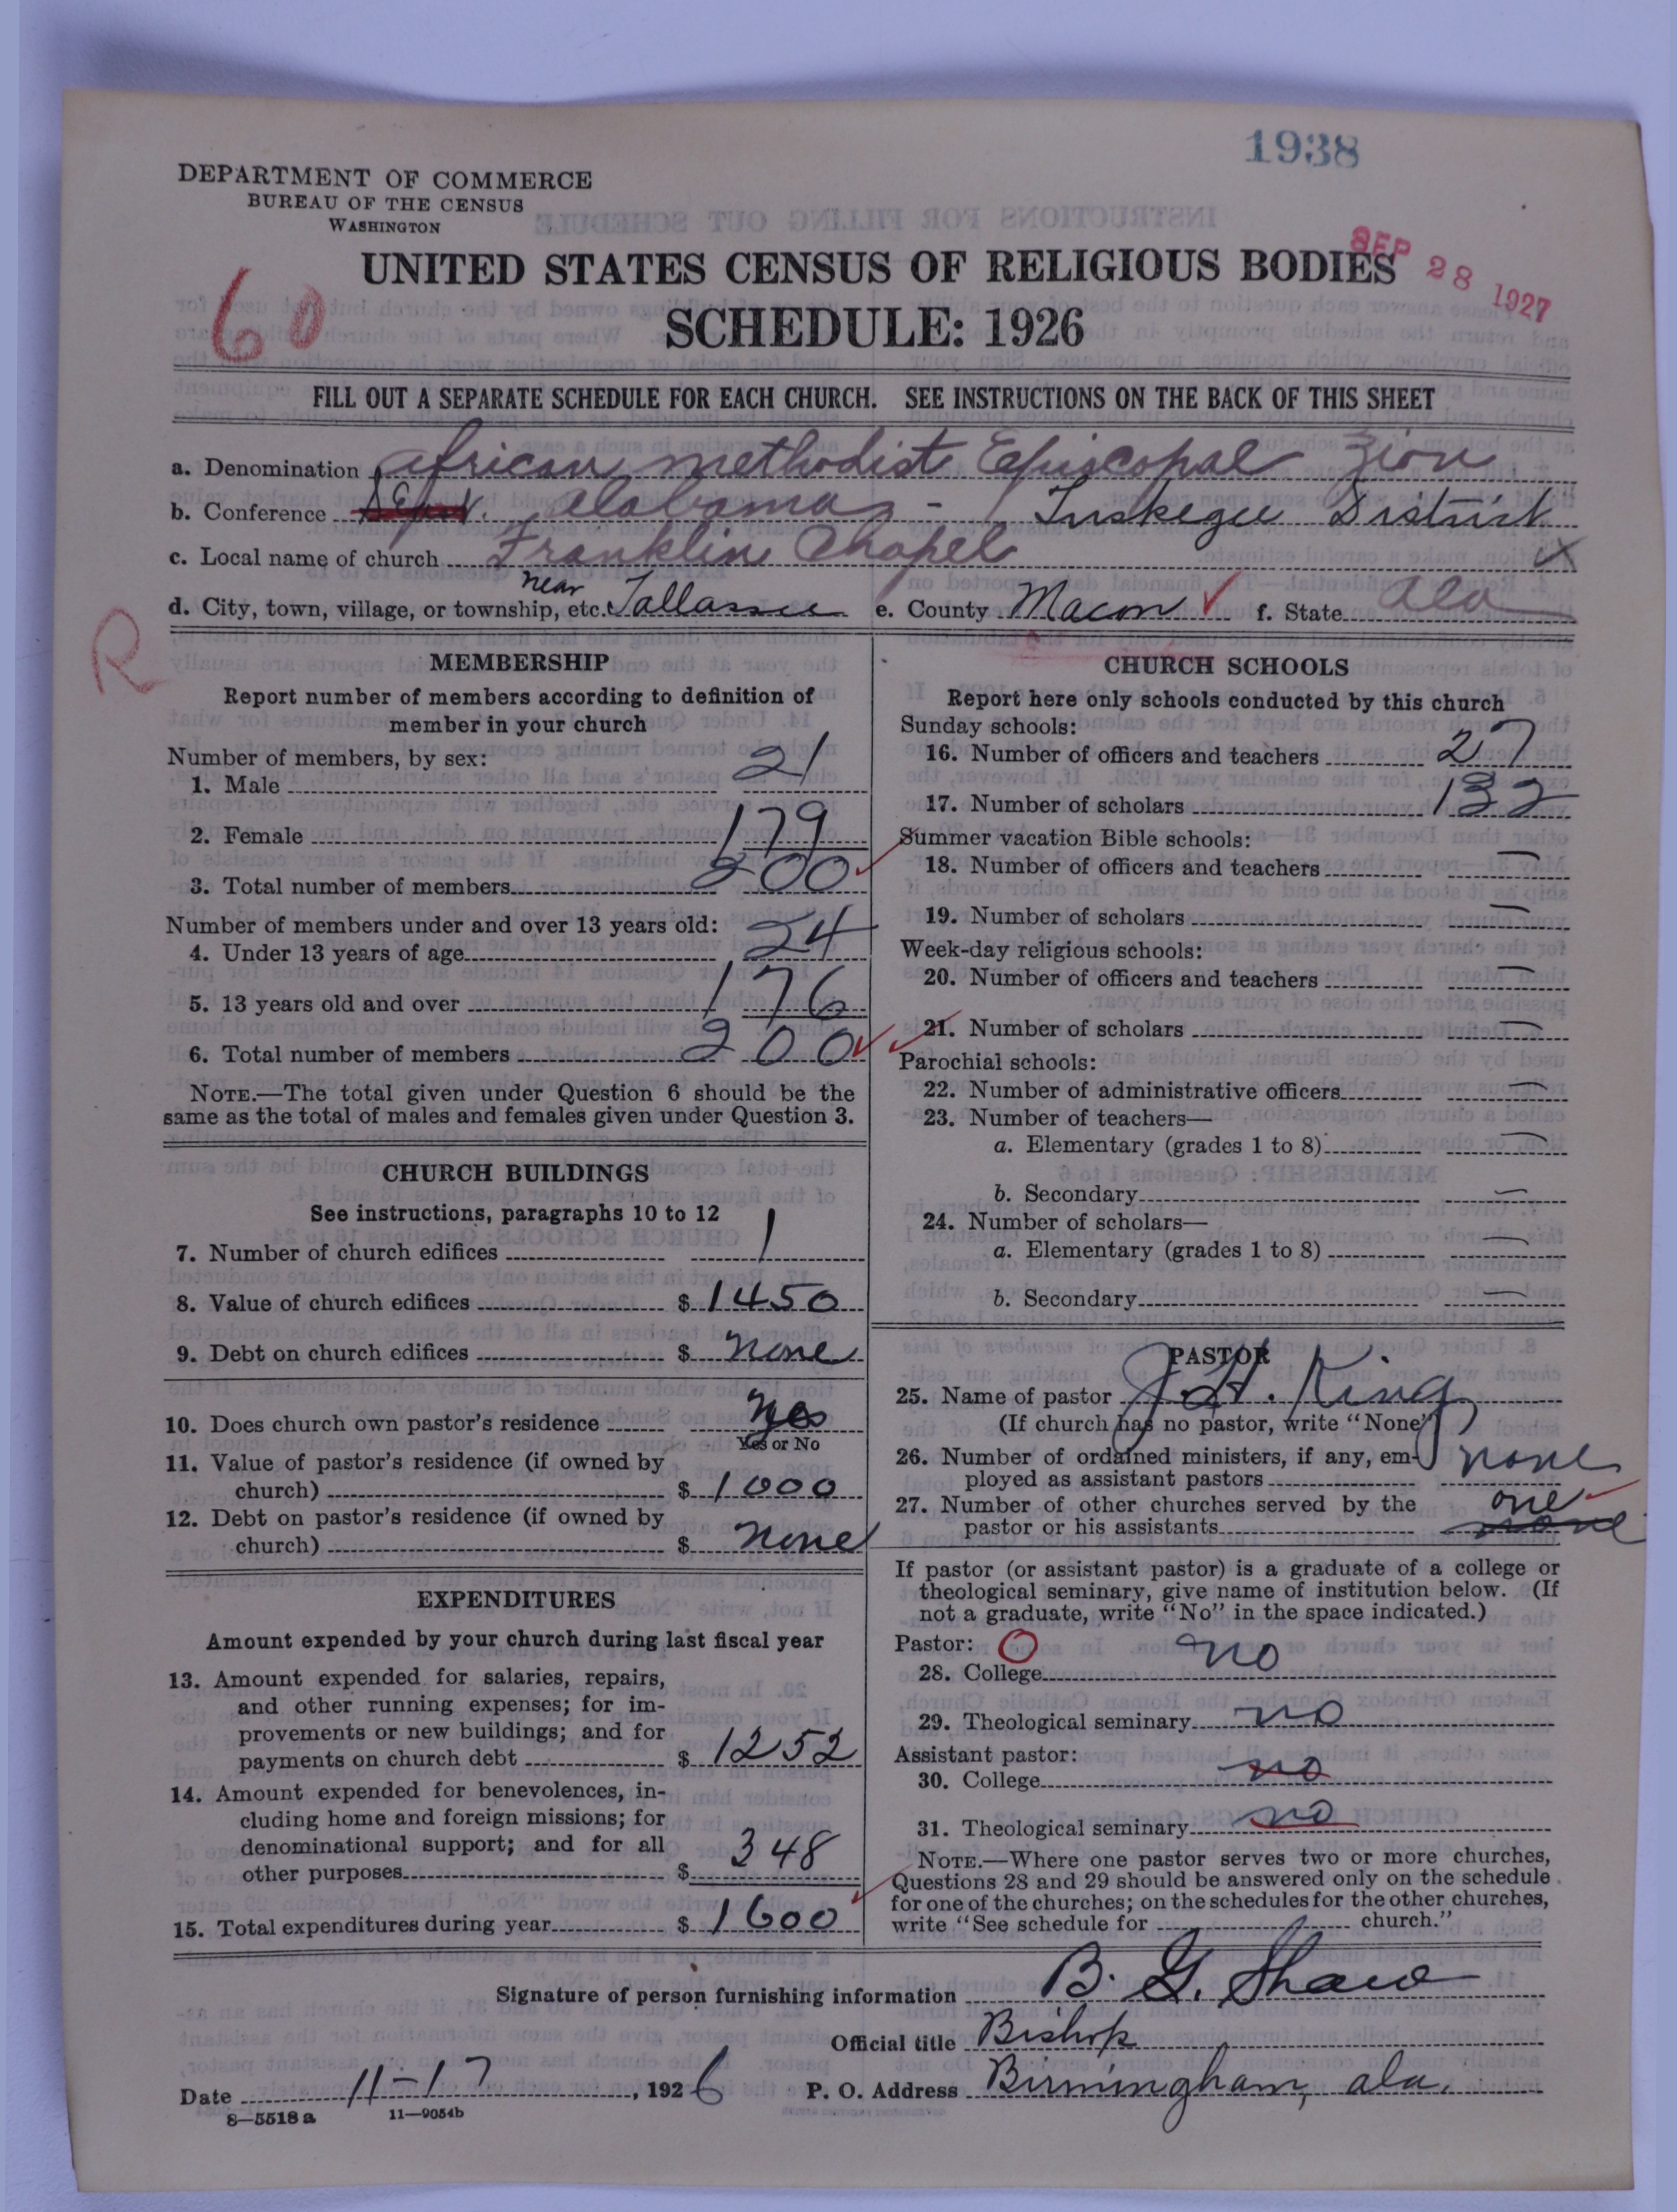 1938
DEPARTMENT OF COMMERCE
BUREAU OF THE CENSUS
WASHINGTON
SEP 28 1927
UNITED STATES CENSUS OF RELIGIOUS BODIES
60
SCHEDULE: 1926
FILL OUT A SEPARATE SCHEDULE FOR EACH CHURCH. SEE INSTRUCTIONS ON THE BACK OF THIS SHEET
a. Denomination African Methodist Episcopal Zion
b. Conference Alabama - Tuskegee District
c. Local name of church Franklin Chapel X
d. City, town, village, or township, etc. near Tallassee e. County Macon f. State Ala
R
MEMBERSHIP
Report number of members according to definition of
member in your church
Number of members, by sex:
1. Male 21
2. Female 179
3. Total number of members 200
Number of members under and over 13 years old:
4. Under 13 years of age 24
5. 13 years old and over 176
6. Total number of members 200
NOTE.—The total given under Question 6 should be the
same as the total of males and females given under Question 3.
CHURCH BUILDINGS
See instructions, paragraphs 10 to 12
7. Number of church edifices 1
8. Value of church edifices $ 1450
9. Debt on church edifices $ none
10. Does church own pastor's residence yes
Yes or No
11. Value of pastor's residence (if owned by
church) $ 1000
12. Debt on pastor's residence (if owned by
church) $ none
EXPENDITURES
Amount expended by your church during last fiscal year
13. Amount expended for salaries, repairs,
and other running expenses; for im-
provements or new buildings; and for
payments on church debt $ 1252
14. Amount expended for benevolences, in-
cluding home and foreign missions; for
denominational support; and for all
other purposes $ 348
15. Total expenditures during year $ 1600
CHURCH SCHOOLS
Report here only schools conducted by this church
Sunday schools:
16. Number of officers and teachers 27
17. Number of scholars 132
Summer vacation Bible schools:
18. Number of officers and teachers —
19. Number of scholars —
Week-day religious schools:
20. Number of officers and teachers —
21. Number of scholars —
Parochial schools:
22. Number of administrative officers —
23. Number of teachers—
a. Elementary (grades 1 to 8) —
b. Secondary —
24. Number of scholars—
a. Elementary (grades 1 to 8) —
b. Secondary —
PASTOR
25. Name of pastor J. H. King
(If church has no pastor, write "None")
26. Number of ordained ministers, if any, em-
ployed as assistant pastors none
27. Number of other churches served by the one
pastor or his assistants none
If pastor (or assistant pastor) is a graduate of a college or
theological seminary, give name of institution below. (If
not a graduate, write "No" in the space indicated.)
Pastor: O
28. College no
29. Theological seminary no
Assistant pastor:
30. College no
31. Theological seminary no
NOTE.—Where one pastor serves two or more churches,
Questions 28 and 29 should be answered only on the schedule
for one of the churches; on the schedules for the other churches,
write "See schedule for church."
Signature of person furnishing information B. G. Shaw
Official title Bishop
Date 11-17, 1926 P. O. Address Birmingham, Ala.
8—5518 a 11—9054b